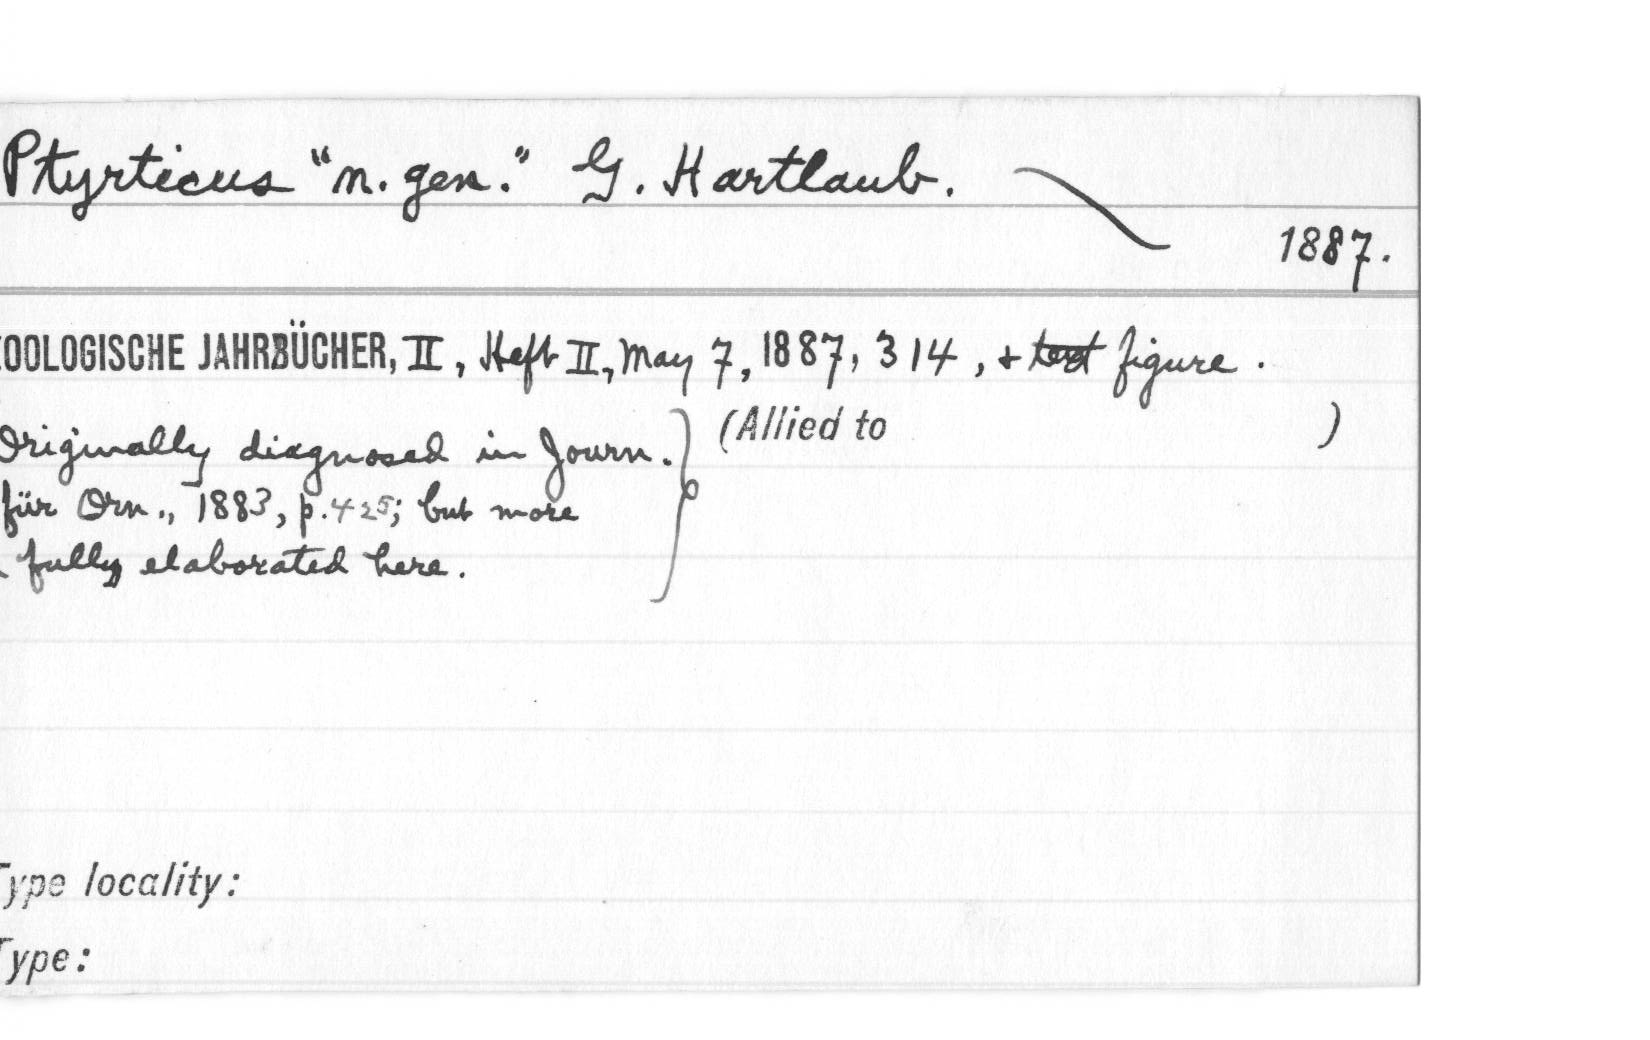 Ptyrticus "n. gen." G. Hartlaub.
1887.
ZOOLOGISCHE JAHRBÜCHER, II, Heft II, May 7, 1887, 314, + text figure.
Originally diagnosed in Journ.
für Orn., 1883, p. 425; but more
fully elaborated here.
(Allied to )
Type locality:
Type: